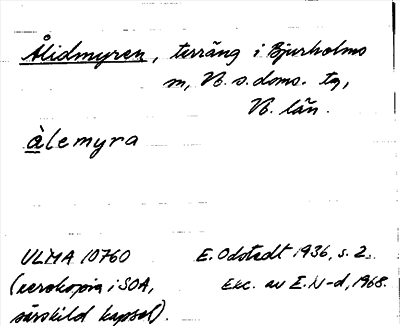 Ålidmyren, terräng i Bjurholms
sn, Vb. s. doms. tg,
Vb. län.
àlemyra
ULMA 10760
(xerokopia i SOA,
särskild kapsel).
E. Odstedt 1936, s. 2.
Exc. av E. N-d, 1968.